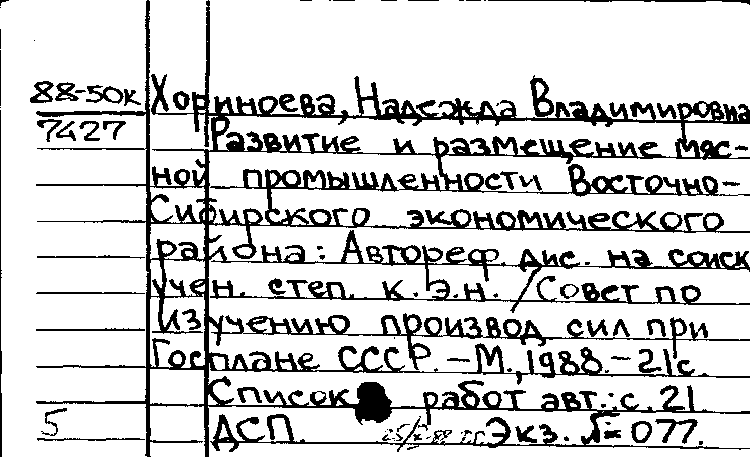 88-50к Хориноева, Надежда Владимировна
7427 Развитие и размещение мяс-
ной промышленности Восточно-
Сибирского экономического
района: Автореф. дис. на соиск
учен. степ. к.э.н. /Совет по
изучению производ сил при
Госплане СССР. -М., 1988. - 21с.
Список работ авт.: с. 21.
5 ДСП. Экз. № 077.